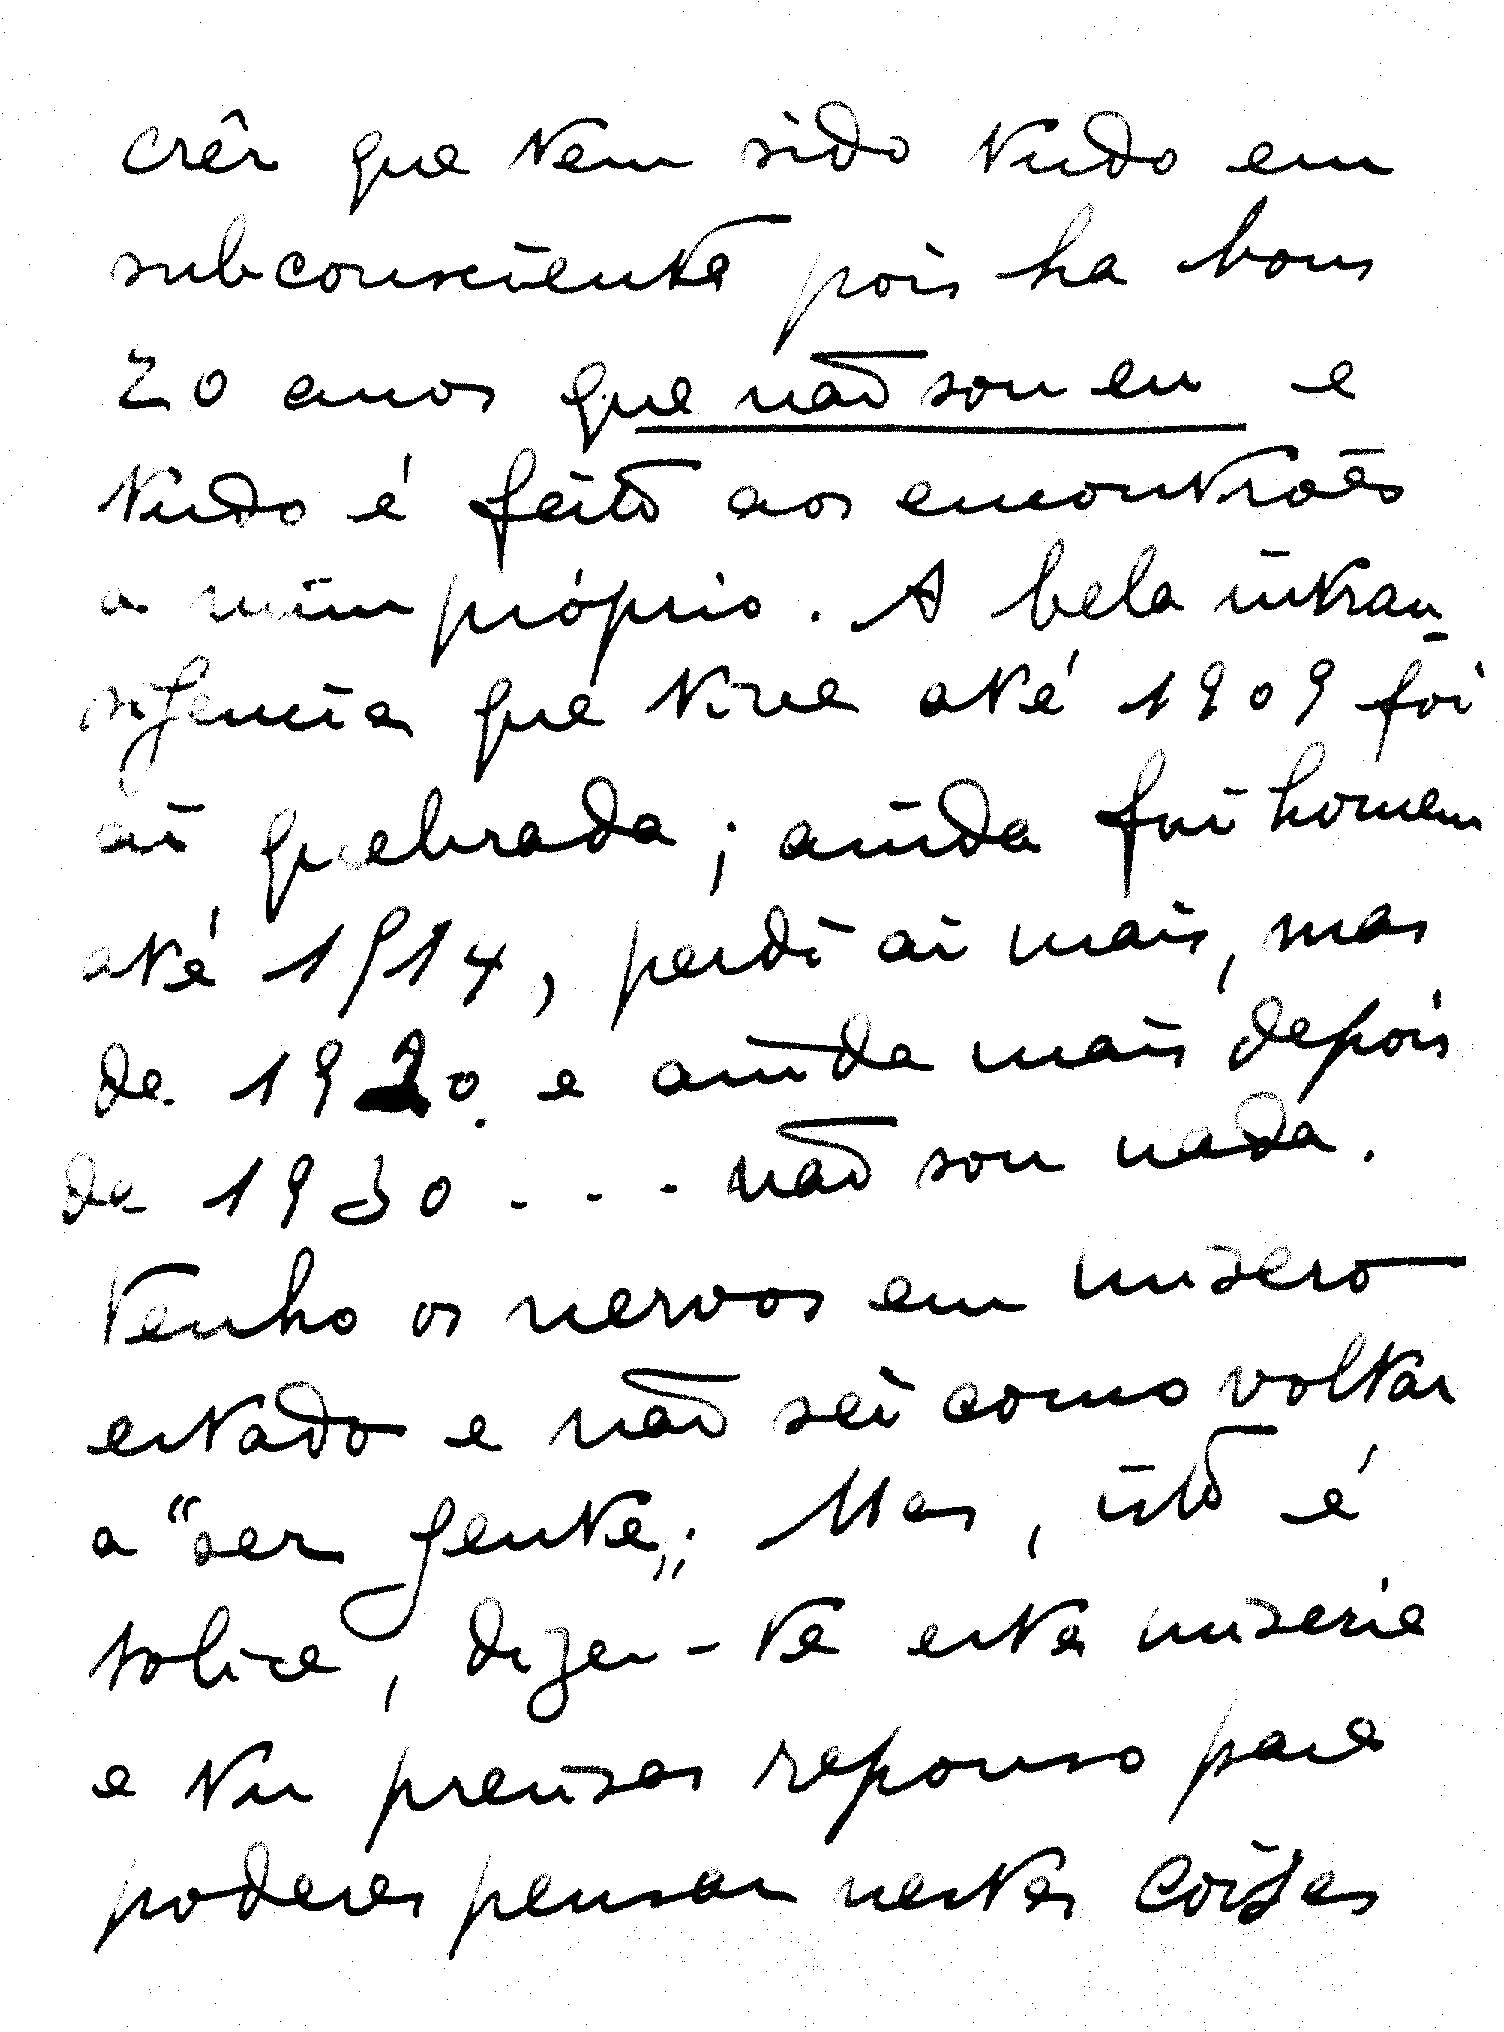 crêr que tem sido tudo em
subconsciente pois ha bons
20 anos que não sou eu e
tudo é feito aos encontrões
a mim próprio. A bela intran
sigencia que tive até 1909 foi
ai quebrada; ainda fui homem
até 1914, perdi ai mais, mas
de 1920 e ainda mais depois
de 1930 . . . não sou nada.
Tenho os nervos em misero
estado e não sei como voltar
a "ser gente„. Mas, isto é
tolice, dizer-te esta miseria
e tu precisas repouso para
poderes pensar nestas coisas